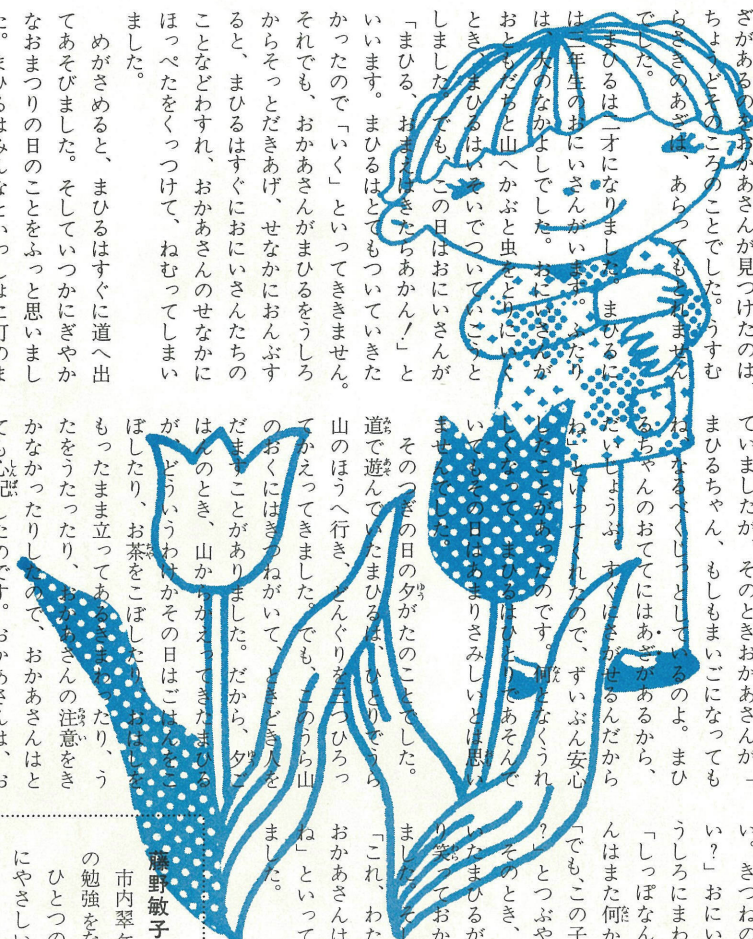 ざがあるのをおかあさんが見つけたのは
ちょうどそのころのことでした。うすむ
らさきのあざは、あらってもとれません
でした。
まひるは二才になりました。まひるに
は二年生のおにいさんがいます。ふたり
は、大のなかよしでした。おにいさんが
おともだちと山へかぶと虫をとりにいく
とき、まひるはいそいでついていこうと
しました。でも、この日はおにいさんが
「まひる、おまえはきたらあかん！」と
いいます。まひるはとてもついていきた
かったので「いく」といってききません。
それでも、おかあさんがまひるをうしろ
からそっとだきあげ、せなかにおんぶす
ると、まひるはすぐにおにいさんたちの
ことなどわすれ、おかあさんのせなかに
ほっぺたをくっつけて、ねむってしまい
ました。
めがさめると、まひるはすぐに道へ出
てあそびました。そしていつかにぎやか
なおまつりの日のことをふっと思いまし
た。まひるはみんなといっしょに町のま
ていましたが、そのときおかあさんが
まひるちゃん、もしもまいごになっても
ね、なるべくじっとしているのよ。まひ
るちゃんのおててにはあざがあるから、
だいじょうぶ、すぐにさがせるんだから
ね」といってくれたので、ずいぶん安心
したことがあったのです。何となくうれ
しくなって、まひるはひとりであそんで
いてもその日はあまりさみしいとは思い
ませんでした。
そのつぎの日の夕がたのことでした。
道で遊んでいたまひるは、ひとりでうら
山のほうへ行き、どんぐりを三つひろっ
てかえってきました。でも、このうら山
のおくにはきつねがいて、ときどき人を
だますことがありました。だから、夕ご
はんのとき、山からかえってきたまひる
が、どういうわけかその日はごはんをこ
ぼしたり、お茶をこぼしたり、おはしを
もったまま立ってあるきまわったり、う
たをうたったり、おかあさんの注意をき
かなかったりしたので、おかあさんはと
ても心配したのです。おかあさんは、お
い。きつねの
い？」おにい
うしろにまわ
「しっぽなん
んはまた何か
「でも、この子
？」とつぶや
そのとき、
いたまひるが
り笑っておか
ました。そ
「これ、わた
おかあさんは
ね」といって
ました。
藤野敏子
市内翠ケ
の勉強をな
ひとつの
にやさしい